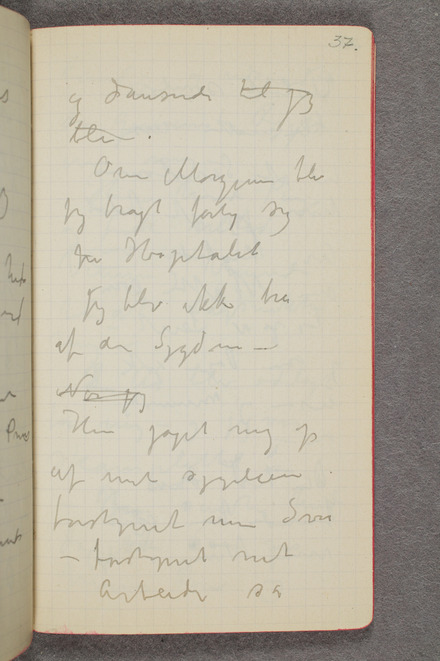 37.
og dansende til jeg
blev.
Om Morgenen blev
jeg bragt syg
på Hospitalet
Jeg blev ikke bra
af den Sygdom —
Når jeg
Hun jaget mig op
af mit sygeleie
forstyrret min Søvn
— forstyrret mit
Arbeide så